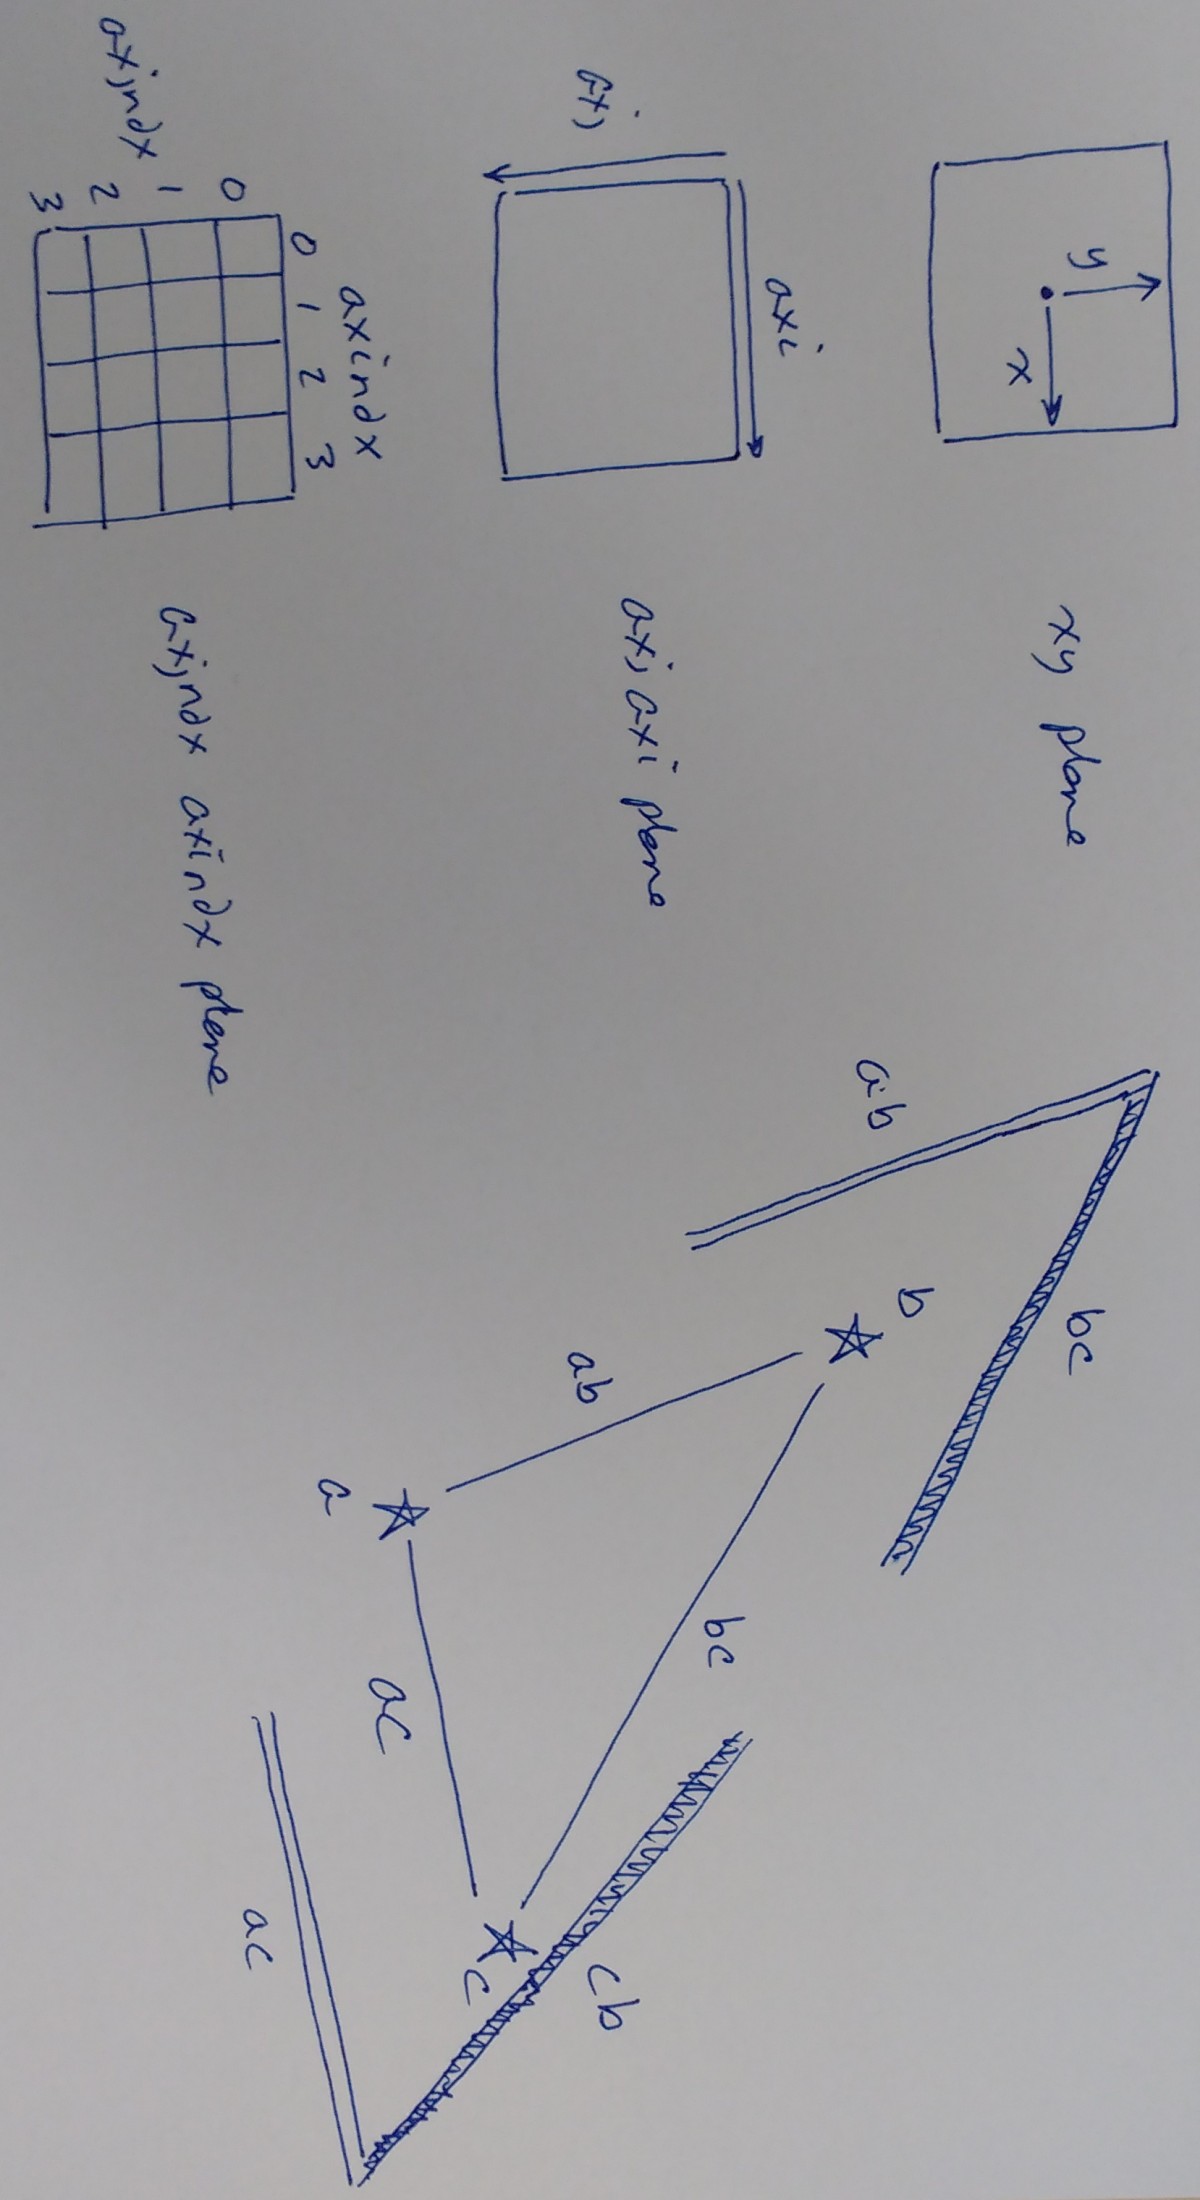 y
x
xy plane
axi
axj
axj axi plane
axindx
0 1 2 3
0
1
2
3
axjndx
axjndx axindx plane
bc
ab
b
bc
ab
cb
c
ac
a
ac